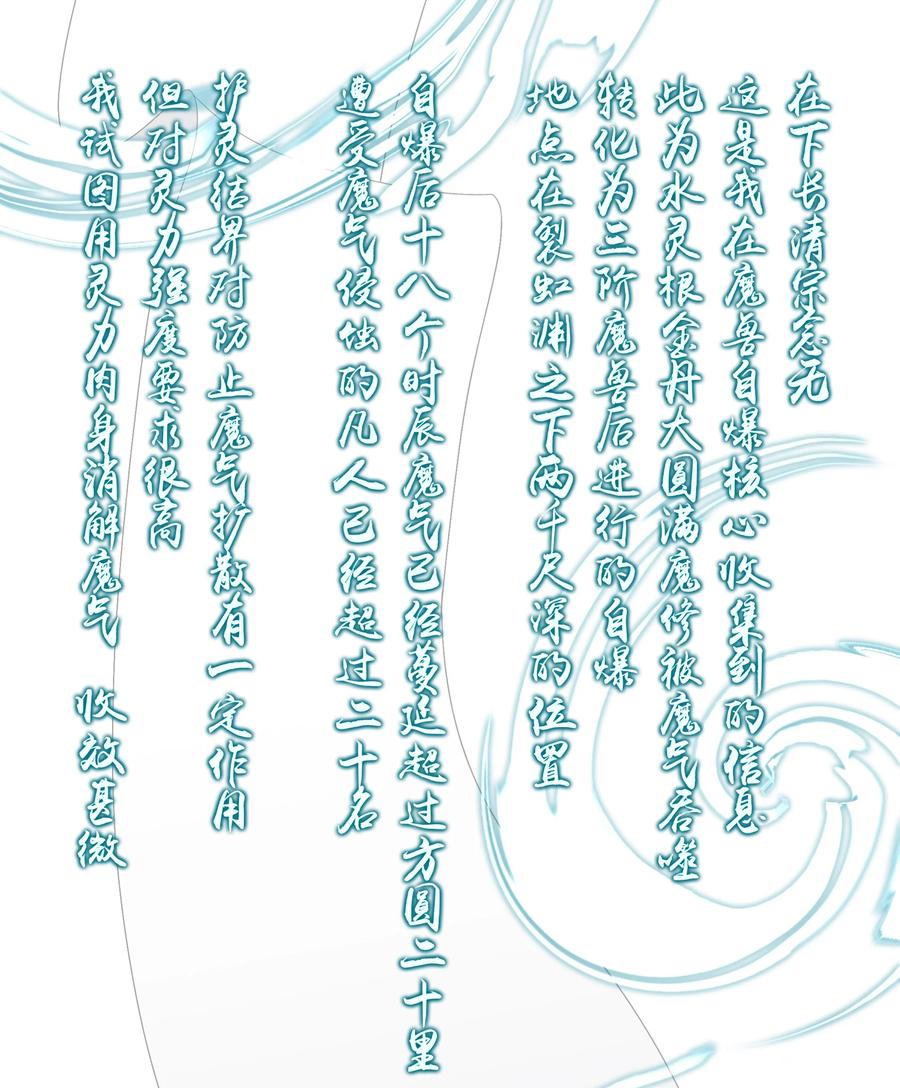 在下长清宗念无
这是我在魔兽自爆核心收集到的信息
此为水灵根金丹大圆满魔修被魔气吞噬
转化为三阶魔兽后进行的自爆
地点在裂虹渊之下两千尺深的位置
自爆后十八个时辰魔气已经蔓延超过方圆二十里
遭受魔气侵蚀的凡人已经超过二十名
护灵结界对防止魔气扩散有一定作用
但对灵力强度要求很高
我试图用灵力肉身消解魔气 收效甚微